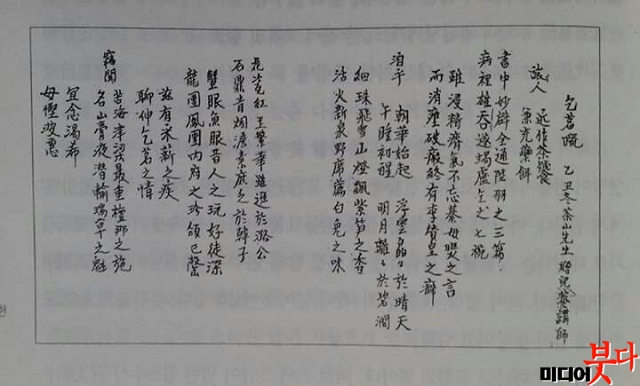 乞茗疏 乙丑冬茶山先生贈兒菴禪師
旅人 近作茶饕
兼充藥餌
書中妙辟全通陸羽之三篇
病裡雄吞遂竭盧仝之七椀
雖浸精瘠氣不忘綦母煚之言
而消壅破瘢終有李贊皇之癖
洎乎 朝華始起 浮雲皛〻於晴天
午睡初醒 明月離〻於碧澗
細珠飛雪山燈飄紫笋之香
活火新泉野席薦白兔之味
花瓷紅玉繁華雖遜於潞公
石鼎青烟澹素庶乏於韓子
蟹眼魚眼昔人之玩好徒深
龍團鳳團內府之珍頒已罄
茲有采薪之疾
聊伸乞茗之情
竊聞 苦海津梁最重檀那之施
名山膏液潛輸瑞草之魁
宜念渴希
毋慳波惠
현
미디어붓다